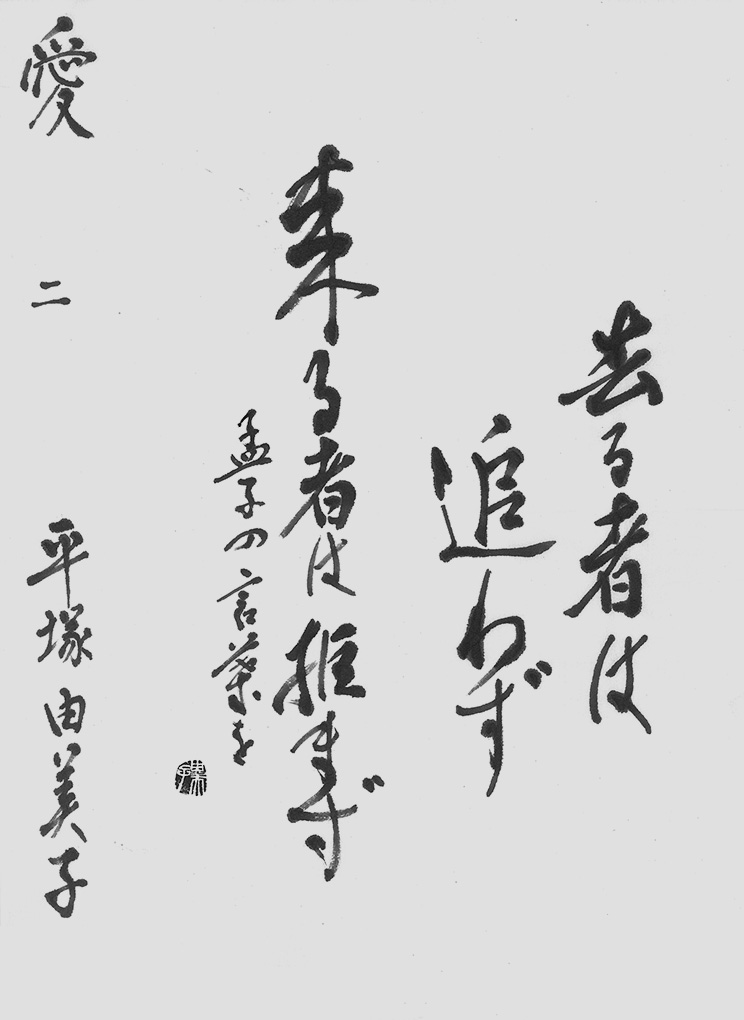 去る者は
追わず
来る者は推まず
孟子の言葉を
愛二 平塚由美子